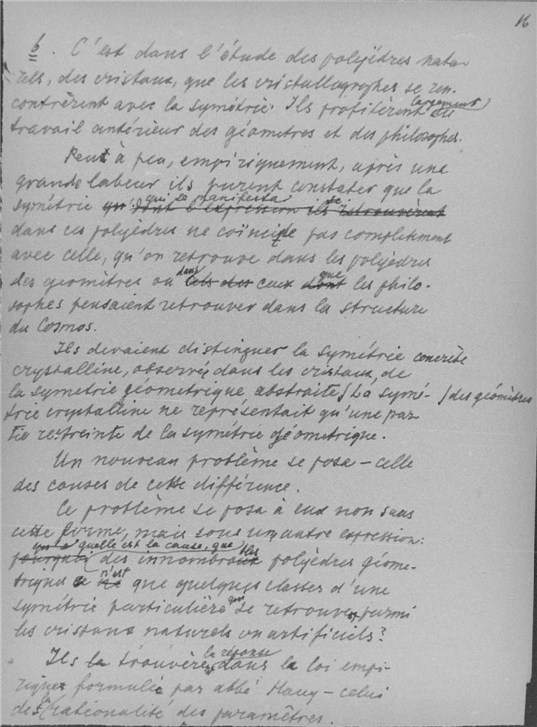 16
6. C'est dans l'étude des polyèdres natu-
rels, des cristaux, que les cristallographes se ren-
contrèrent avec la symétrie. Ils profitèrent largement du
travail antérieur des géometres et des philosophes.
Peut à peu, empiriquement, après une
grande labeur ils purent constater que la
symétrie qui se manifesta
dans ces polyedres ne coïncide pas completment
avec celle, qu'on retrouve dans les polyèdres
des geomètres ou dans ceux que les philo-
sophes pensaient retrouver dans la structure
du Cosmos.
Ils devaient distinguer la symétrie concrète
crystalline, observée dans les cristaux, de
la symetrie géometrique abstraite des géomètres. La symé-
trie crystalline ne représentait qu'une par-
tie restreinte de la symétrie géometrique.
Un nouveau problème se posa – celle
des causes de cette différence.
Ce problème se posa à eux non sous
cette forme, mais sous un autre expression:
quelle est la cause, que des innombrables polyèdres géome-
triques ce n'est que quelques classes d'une
symétrie particulière qui se retrouve parmi
les cristaux naturels ou artificiels?
Ils la trouvèrent la réponse dans la loi empi-
rique formulée par abbé Hauy – celui
de la rationalité des paramètres.